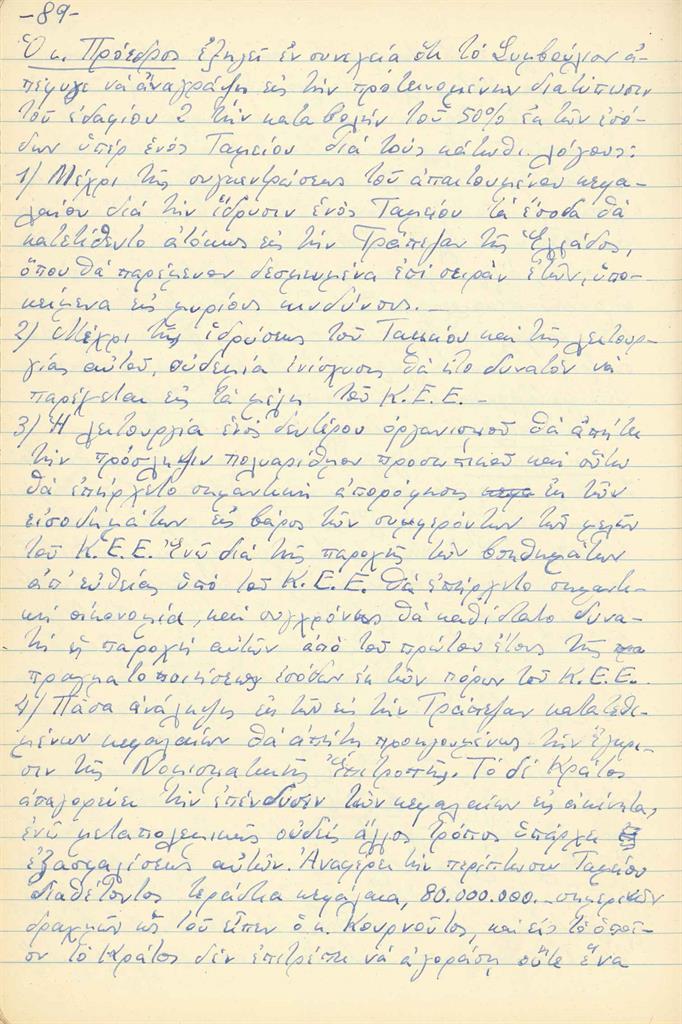 -89-
Ὁ κ. Πρόεδρος ἐξηγεῖ ἐν συνεχείᾳ ὅτι τὸ Συμβούλιον ἀ-
πέφυγε νὰ ἀναγράψῃ εἰς τὴν προτεινομένην διατύπωσιν
τοῦ ἐδαφίου 2 τὴν καταβολὴν τοῦ 50% ἐκ τῶν ἐσό-
δων ὑπὲρ ἑνὸς Ταμείου διὰ τοὺς κάτωθι λόγους:
1) Μέχρι τῆς συγκεντρώσεως τοῦ ἀπαιτουμένου κεφα-
λαίου διὰ τὴν ἵδρυσιν ἑνὸς Ταμείου τὰ ἔσοδα θὰ
κατετίθεντο ἀτόκως εἰς τὴν Τράπεζαν τῆς Ἑλλάδος,
ὅπου θὰ παρέμενον δεσμευμένα ἐπὶ σειρὰν ἐτῶν, ὑπο-
κείμενα εἰς μυρίους κινδύνους.-
2) Μέχρι τῆς ἱδρύσεως τοῦ Ταμείου καὶ τῆς λειτουρ-
γίας αὐτοῦ, οὐδεμία ἐνίσχυσις θὰ ἦτο δυνατὸν νὰ
παρέχεται εἰς τὰ μέλη τοῦ Κ.Ε.Ε.-
3) Ἡ λειτουργία ἑνὸς δευτέρου ὀργανισμοῦ θὰ ἀπῄτει
τὴν πρόσληψιν πολυαρίθμου προσωπικοῦ καὶ οὕτω
θὰ ἐπήρχετο σημαντικὴ ἀπορρόφησις ἐκ τῶν
εἰσοδημάτων εἰς βάρος τῶν συμφερόντων τῶν μελῶν
τοῦ Κ.Ε.Ε. Ἐνῷ διὰ τῆς παροχῆς τῶν βοηθημάτων
ἀπ' εὐθείας ὑπὸ τοῦ Κ.Ε.Ε. θὰ ἐπήρχετο σημαντι-
κὴ οἰκονομία, καὶ συγχρόνως θὰ καθίστατο δυνα-
τὴ ἡ παροχὴ αὐτῶν ἀπὸ τοῦ πρώτου ἔτους τῆς
πραγματοποιήσεως ἐσόδων ἐκ τῶν πόρων τοῦ Κ.Ε.Ε.
4) Πᾶσα ἀνάληψις ἐκ τῶν εἰς τὴν Τράπεζαν κατατεθει-
μένων κεφαλαίων θὰ ἀπῄτει προηγουμένως τὴν ἔγκρι-
σιν τῆς Νομισματικῆς Ἐπιτροπῆς. Τὸ δὲ Κράτος
ἀπαγορεύει τὴν ἐπένδυσιν τῶν κεφαλαίων εἰς ἀκίνητα,
ἐνῷ μεταπολεμικῶς οὐδεὶς ἄλλος τρόπος ὑπάρχει
ἐξασφαλίσεως αὐτῶν. Ἀναφέρει τὴν περίπτωσιν Ταμείου
διαθέτοντος τεράστια κεφάλαια, 80.000.000.- σημερινῶν
δραχμῶν ὡς τοῦ εἶπεν ὁ κ. Κουρνοῦτος, καὶ εἰς τὸ ὁποῖ-
ον τὸ Κράτος δὲν ἐπιτρέπει νὰ ἀγοράσῃ οὔτε ἕνα